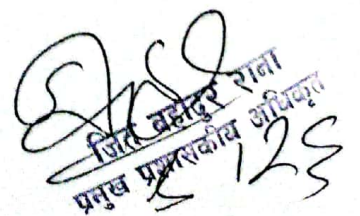 जित बहादुर राना
प्रमुख प्रशासकीय अधिकृत